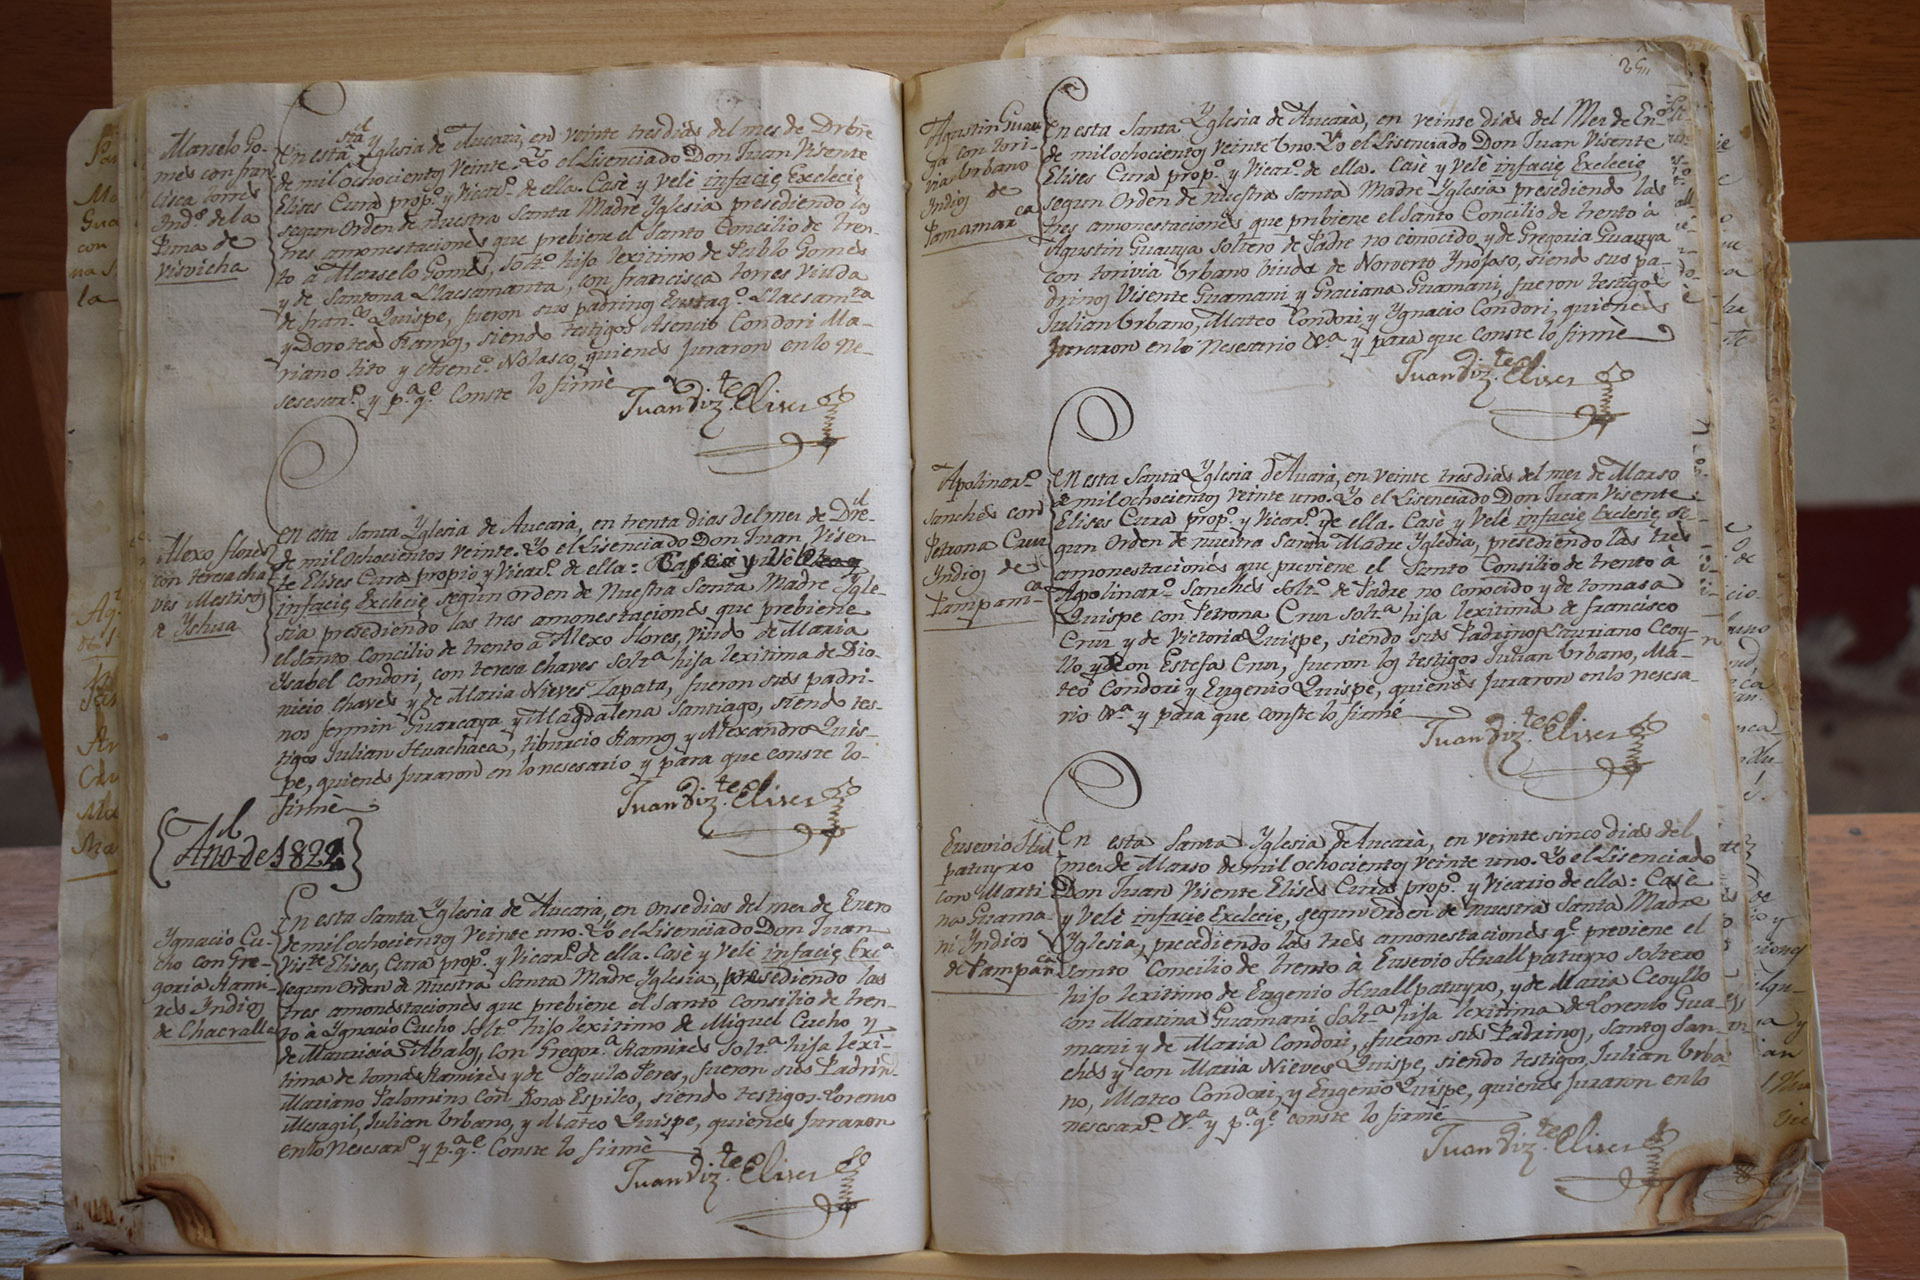 Marselo Go-
mes con fran
cisca torres
Ind.s de la
Puna de
Visvicha
En esta Sta Yglesia de Aucarà, en veinte tres dias del mes de Dizbre
de mil ochocientos veinte. Yo el Lisenciado Don Juan Visente
Elises Cura prop.º y Vicar.º de ella. Casè y Velè infacie Exclecie
segun Orden de Nuestra Santa Madre Yglesia presediendo las
tres amonestaciones que prebiene el Santo Concilio de tren-
to à Marselo Gomes, solt.º hijo lexitimo de Pablo Gomes
y de Santona Llacsamanta, con francisca torres Viuda
de fran.co Quispe, fueron sus padrinos Eustaq.º Llacsamta
y Dorotea Ramos, siendo testigos Asencio Condori Ma-
riano tito y Asenc.º Nolasco, quienes juraron enlo ne-
sesar.º y p.a q.e Conste lo firmè
Juan Viz.te Elises
Alexo flores
con teresa cha
ves Mestisos
de Yshua
en esta Santa Yglesia de Aucarà, en trenta dias del mes de Dre-
de mil ochocientos veinte. Yo el Lisenciado Don Juan Visen-
te Elises Cura propio y Vicar.º de ella: Casè y Velè
infacie Exclecie segun orden de Nuestra Santa Madre Ygle-
sia presediendo las tres amonestaciones que prebiene
el Santo Concilio de trento à Alexo Flores, viudo de Maria
Ysabel Condori, con teresa Chaves Solt.a hija lexitima de Dio-
nicio Chaves y de Maria Nieves Zapata, fueron sus padri-
nos fermin Guarcaya y Magdalena Santiago, siendo tes-
tigos Julian Huachaca, tiburcio Ramos y Alexandro Quis-
pe, quienes juraron en lo nesesario y para que conste lo-
firmè
Juan Viz.te Elises
Año de 1821
Ygnacio Cu-
cho con Gre-
goria Rami-
res Yndios
de Chacralla
En esta Santa Yglesia de Aucarà, en onse dias del mes de Enero
de mil ochocientos veinte uno. Yo el Lisenciado Don Juan
Viste Elises, Cura prop.º y Vicar.º de ella. Casè y Velè infacie Exca
segun Orden de Nuestra Santa Madre Yglesia, presediendo las
tres amonestaciones que prebiene el Santo Consilio de tren-
to à Ygnacio Cucho Solt.º hijo lexitimo de Miguel Cucho y
de Mauricia Abalos, con Gregor.a Ramires Solt.a hija lexi-
tima de tomas Ramires y de Paula Peres, fueron sus Padrin.
Mariano Palomino con Rosa Espilco, siendo testigos Lorenso
Mesagil, Julian Urbano, y Mateo Quispe, quienes juraron
enlo Nesesar.º y p.a q.e Conste lo firmè
Juan Viz.te Elises
Agustin Guau
ya con tori-
via Urbano
Yndios de
Pamamarca
En esta Santa Yglesia de Aucarà, en veinte dias del Mes de En.º
de mil ochocientos veinte Uno. Yo el Lisenciado Don Juan Visente
Elises Cura prop.º y Vicar.º de ella. Casè y Velè infacie Exclecie
segun Orden de nuestra Santa Madre Yglesia presediendo las
tres amonestaciones que pribiene el Santo Concilio de trento à
Agustin Guauya Soltero de Padre no conocido y de Gregoria Guauya
con torivia Urbano Viuda de Norverto Ynojoso, siend sus pa-
drinos Visente Guamani y Graciana Guamani, fueron testigos
Julian Urbano, Mateo Condori, y Ygnacio Condori, quienes
juraron en lo Nesesario &.a y para que conste lo firmè
Juan Viz.te Elises
Apolinar.º
Sanches con
Petrona Crus
Yndios de
Pampamca
En esta Santa Yglesia de Aucarà, en veinte tres dias del mes de Marso
de mil ochocientos veinte uno. Yo el Lisenciado Don Juan Visente
Elises Cura prop.º y Vicar.º de ella. Casè y Velè infacie Exclesie se-
gun Orden de nuestra Santa Madre Yglesia, presediendo las tres
amonestaciones que previene el Santo Concilio de trento à
Apolinar.º Sanches Solt.º de Padre no conocido y de tomasa
Quispe con Petrona Crus solt.a hija lexitima de francisco
Crus y de Victoria Quispe, siendo sus Padrinos Lauriano Ccoy-
llo y con Estefa Crus, fueron los testigos Julian Urbano, Ma-
teo Condori y Eugenio Quispe, quienes juraron enlo nesesa-
rio &.a y para que conste lo firmè
Juan Viz.te Elises
Eusevio Hual
patuyro
con Marti
na Guama-
ni Yndios
de Pampamca
En esta Santa Yglesia de Aucarà, en veinte sinco dias del
mes de Marso de mil ochocientos veinte uno. Yo el Lisenciado
Don Juan Visente Elises Cura prop.º y Vicario de ella: Casè
y Velè infacie Exclecie, segun Orden de nuestra Santa Madre
Yglesia, precediendo las tres amonestaciones q.e previene el
santo Concilio de trento à Eusevio Huallpatuyro soltero
hijo lexitimo de Eugenio Huallpatuyro, y de Maria Ccoyllo
con Martina Guamani Solt.a hija lexitima de Lorenso Gua-
mani y de Maria Condori, fueron sus Padrinos, Santos San-
ches y con Maria Nieves Quispe, siendo testigos, Julian Urba-
no, Mateo Condori, y Eugenio Quispe, quienes juraron enlo
nesesar.º &.a y p.a q.e conste lo firmè
Juan Viz.te Elises